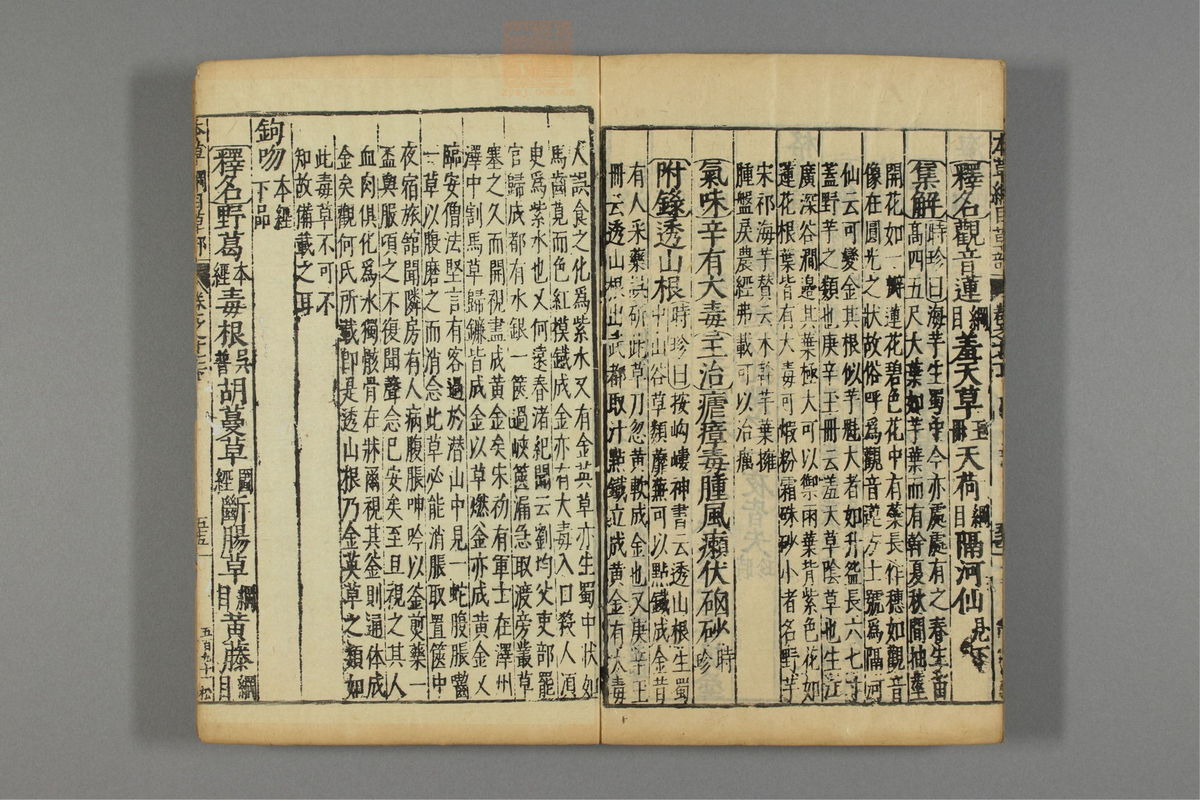 釋名觀音蓮綱目羞天草玉冊天荷綱目隔河仙見下
集解時珍曰海芋生蜀中今亦處處有之春生苗
高四五尺大葉如芋葉而有幹夏秋間抽莖
開花如一瓣蓮花碧色花中有蕊長作穗如觀音
像在圓光之狀故俗呼爲觀音蓮方士號爲隔河
仙云可變金其根似芋魁大者如升盌長六七寸
蓋野芋之類也庚辛玉冊云羞天草陰草也生江
廣深谷澗邊其葉極大可以禦雨葉背紫色花如
蓮花根葉皆有大毒可煅粉霜硃砂小者名野芋
宋祁海芋贊云木榦芋葉擁
腫盤戾農經弗載可以治癘
氣味辛有大毒主治瘧瘴毒腫風癩伏硇砂時珍
附錄透山根時珍曰按岣嶁神書云透山根生蜀
中山谷草類蘼蕪可以點鐵成金昔
有人采藥誤斫此草刀忽黄軟成金也又庚辛玉
冊云透山根出武都取汁點鐵立成黄金有大毒
人誤食之化爲紫水又有金英草亦生蜀中状如
馬齒莧而色紅模鐵成金亦有大毒入口殺人須
臾爲紫水也又何薳春渚紀聞云劉均父吏部罷
官歸成都有水銀一篋過峽篋漏急取渡旁叢草
塞之久而開視盡成黄金矣宋初有軍士在澤州
澤中割馬草歸鐮皆成金以草燃釜亦成黄金又
臨安僧法堅言有客過於潜山中見一蛇腹脹齧
一草以腹磨之而消念此草必能消脹取置篋中
夜宿旅舘聞隣房有人病腹脹呻吟以釜煎藥一
盃與服頃之不復聞聲念已安矣至旦視之其人
血肉俱化爲水獨骸骨在牀爾視其釜則遍体成
金矣觀何氏所載即是透山根乃金英草之類如
此毒草不可不
知故備載之耳
鉤吻本經下品
釋名野葛本經毒根吳普胡蔓草圖經斷腸草綱目黄藤綱目